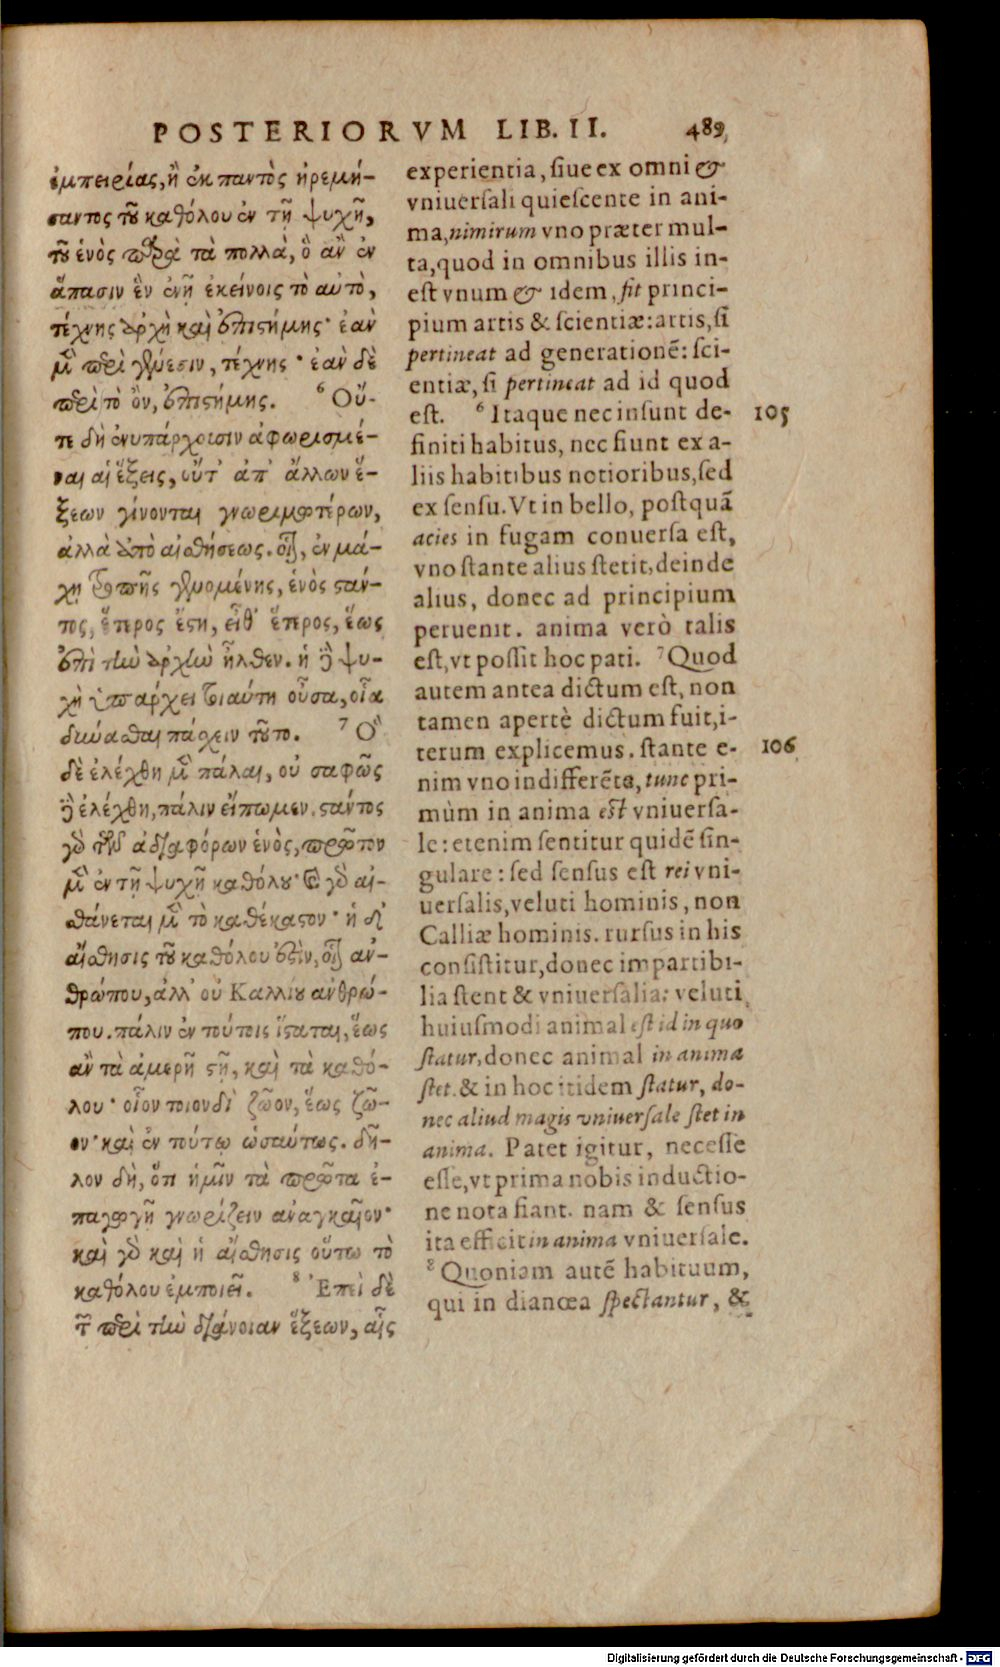 POSTERIORVM LIB. II. 489
ἐμπειρίας, ἢ ἐκ παντὸς ἠρεμή-
σαντος τοῦ καθόλου ἐν τῇ ψυχῇ,
τοῦ ἑνὸς παρὰ τὰ πολλὰ, ὃ ἂν ἐν
ἅπασιν ἓν ἐνῇ ἐκείνοις τὸ αὐτὸ,
τέχνης ἀρχὴ καὶ ἐπιστήμης· ἐὰν
μὲν περὶ γένεσιν, τέχνης· ἐὰν δὲ
περὶ τὸ ὂν, ἐπιστήμης. ⁶ Οὔ-
τε δὴ ἐνυπάρχουσιν ἀφωρισμέ-
ναι αἱ ἕξεις, οὔτ' ἀπ' ἄλλων ἕ-
ξεων γίνονται γνωριμωτέρων,
ἀλλὰ ἀπὸ αἰσθήσεως. οἷον, ἐν μά-
χῃ τροπῆς γενομένης, ἑνὸς στάν-
τος, ἕτερος ἔστη, εἶθ' ἕτερος, ἕως
ἐπὶ τὴν ἀρχὴν ἦλθεν. ἡ δὲ ψυ-
χὴ ὑπάρχει τοιαύτη οὖσα, οἵα
δύνασθαι πάσχειν τοῦτο. ⁷ Ὃ
δὲ ἐλέχθη μὲν πάλαι, οὐ σαφῶς
δὲ ἐλέχθη, πάλιν εἴπωμεν. στάντος
γὰρ τῶν ἀδιαφόρων ἑνὸς, πρῶτον
μὲν ἐν τῇ ψυχῇ καθόλου· καὶ γὰρ αἰ-
σθάνεται μὲν τὸ καθέκαστον· ἡ δ'
αἴσθησις τοῦ καθόλου ἐστὶν, οἷον ἀν-
θρώπου, ἀλλ' οὐ Καλλίου ἀνθρώ-
που. πάλιν ἐν τούτοις ἵσταται, ἕως
ἂν τὰ ἀμερῆ στῇ, καὶ τὰ καθό-
λου· οἷον τοιονδὶ ζῶον, ἕως ζῶ-
ον· καὶ ἐν τούτῳ ὡσαύτως. δῆ-
λον δὴ, ὅτι ἡμῖν τὰ πρῶτα ἐ-
παγωγῇ γνωρίζειν ἀναγκαῖον·
καὶ γὰρ καὶ ἡ αἴσθησις οὕτω τὸ
καθόλου ἐμποιεῖ. ⁸ Ἐπεὶ δὲ
τῶν περὶ τὴν διάνοιαν ἕξεων, αἷς
experientia, siue ex omni &
vniuersali quiescente in ani-
ma, nimirum vno præter mul-
ta, quod in omnibus illis in-
est vnum & idem, fit princi-
pium artis & scientiæ: artis, si
pertineat ad generationē: sci-
entiæ, si pertineat ad id quod
est. ⁶ Itaque nec insunt de- 105
finiti habitus, nec fiunt ex a-
liis habitibus notioribus, sed
ex sensu. Vt in bello, postquā
acies in fugam conuersa est,
vno stante alius stetit, deinde
alius, donec ad principium
peruenit. anima verò talis
est, vt possit hoc pati. ⁷ Quod
autem antea dictum est, non
tamen apertè dictum fuit, i-
terum explicemus. stante e- 106
nim vno indifferēte, tunc pri-
mùm in anima est vniuersa-
le: etenim sentitur quidē sin-
gulare: sed sensus est rei vni-
uersalis, veluti hominis, non
Calliæ hominis. rursus in his
consistitur, donec impartibi-
lia stent & vniuersalia: veluti
huiusmodi animal est id in quo
statur, donec animal in anima
stet. & in hoc itidem statur, do-
nec aliud magis vniuersale stet in
anima. Patet igitur, necesse
esse, vt prima nobis inductio-
ne nota fiant. nam & sensus
ita efficit in anima vniuersale.
⁸ Quoniam autē habituum,
qui in dianœa spectantur, &
Digitalisierung gefördert durch die Deutsche Forschungsgemeinschaft - DFG